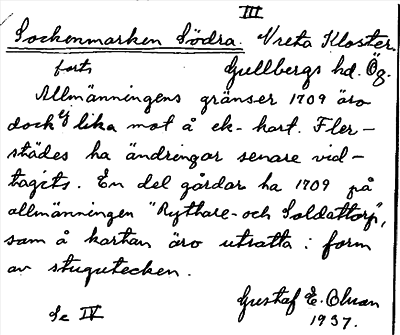 III
Sockenmarken Södra. Vreta Kloster.
forts Gullbergs hd. Ög.
Allmänningens gränser 1709 äro
dock ej lika mot å ek-kart. Fler-
städes ha ändringar senare vid-
tagits. En del gårdar ha 1709 på
allmänningen "Rythare- och Soldattorp",
som å kartan äro utsatta i form
av stugutecken.
Gustaf E. Olsson
Se IV 1937.